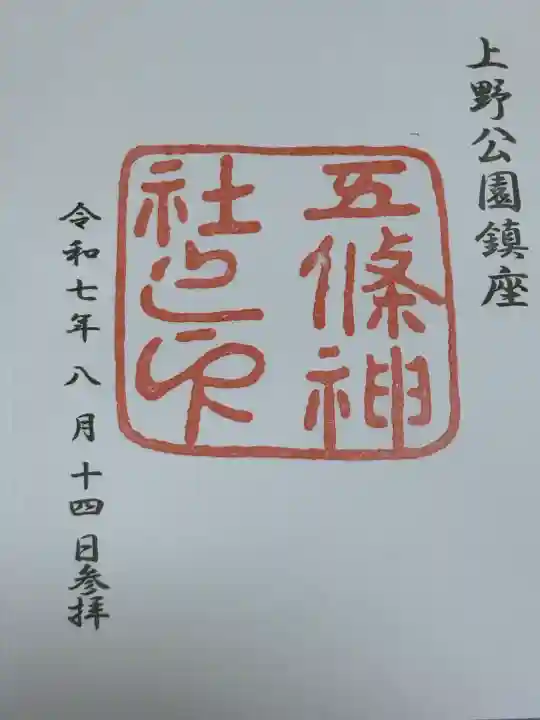 上野公園鎮座
五條神
社之印
令和七年八月十四日参拝